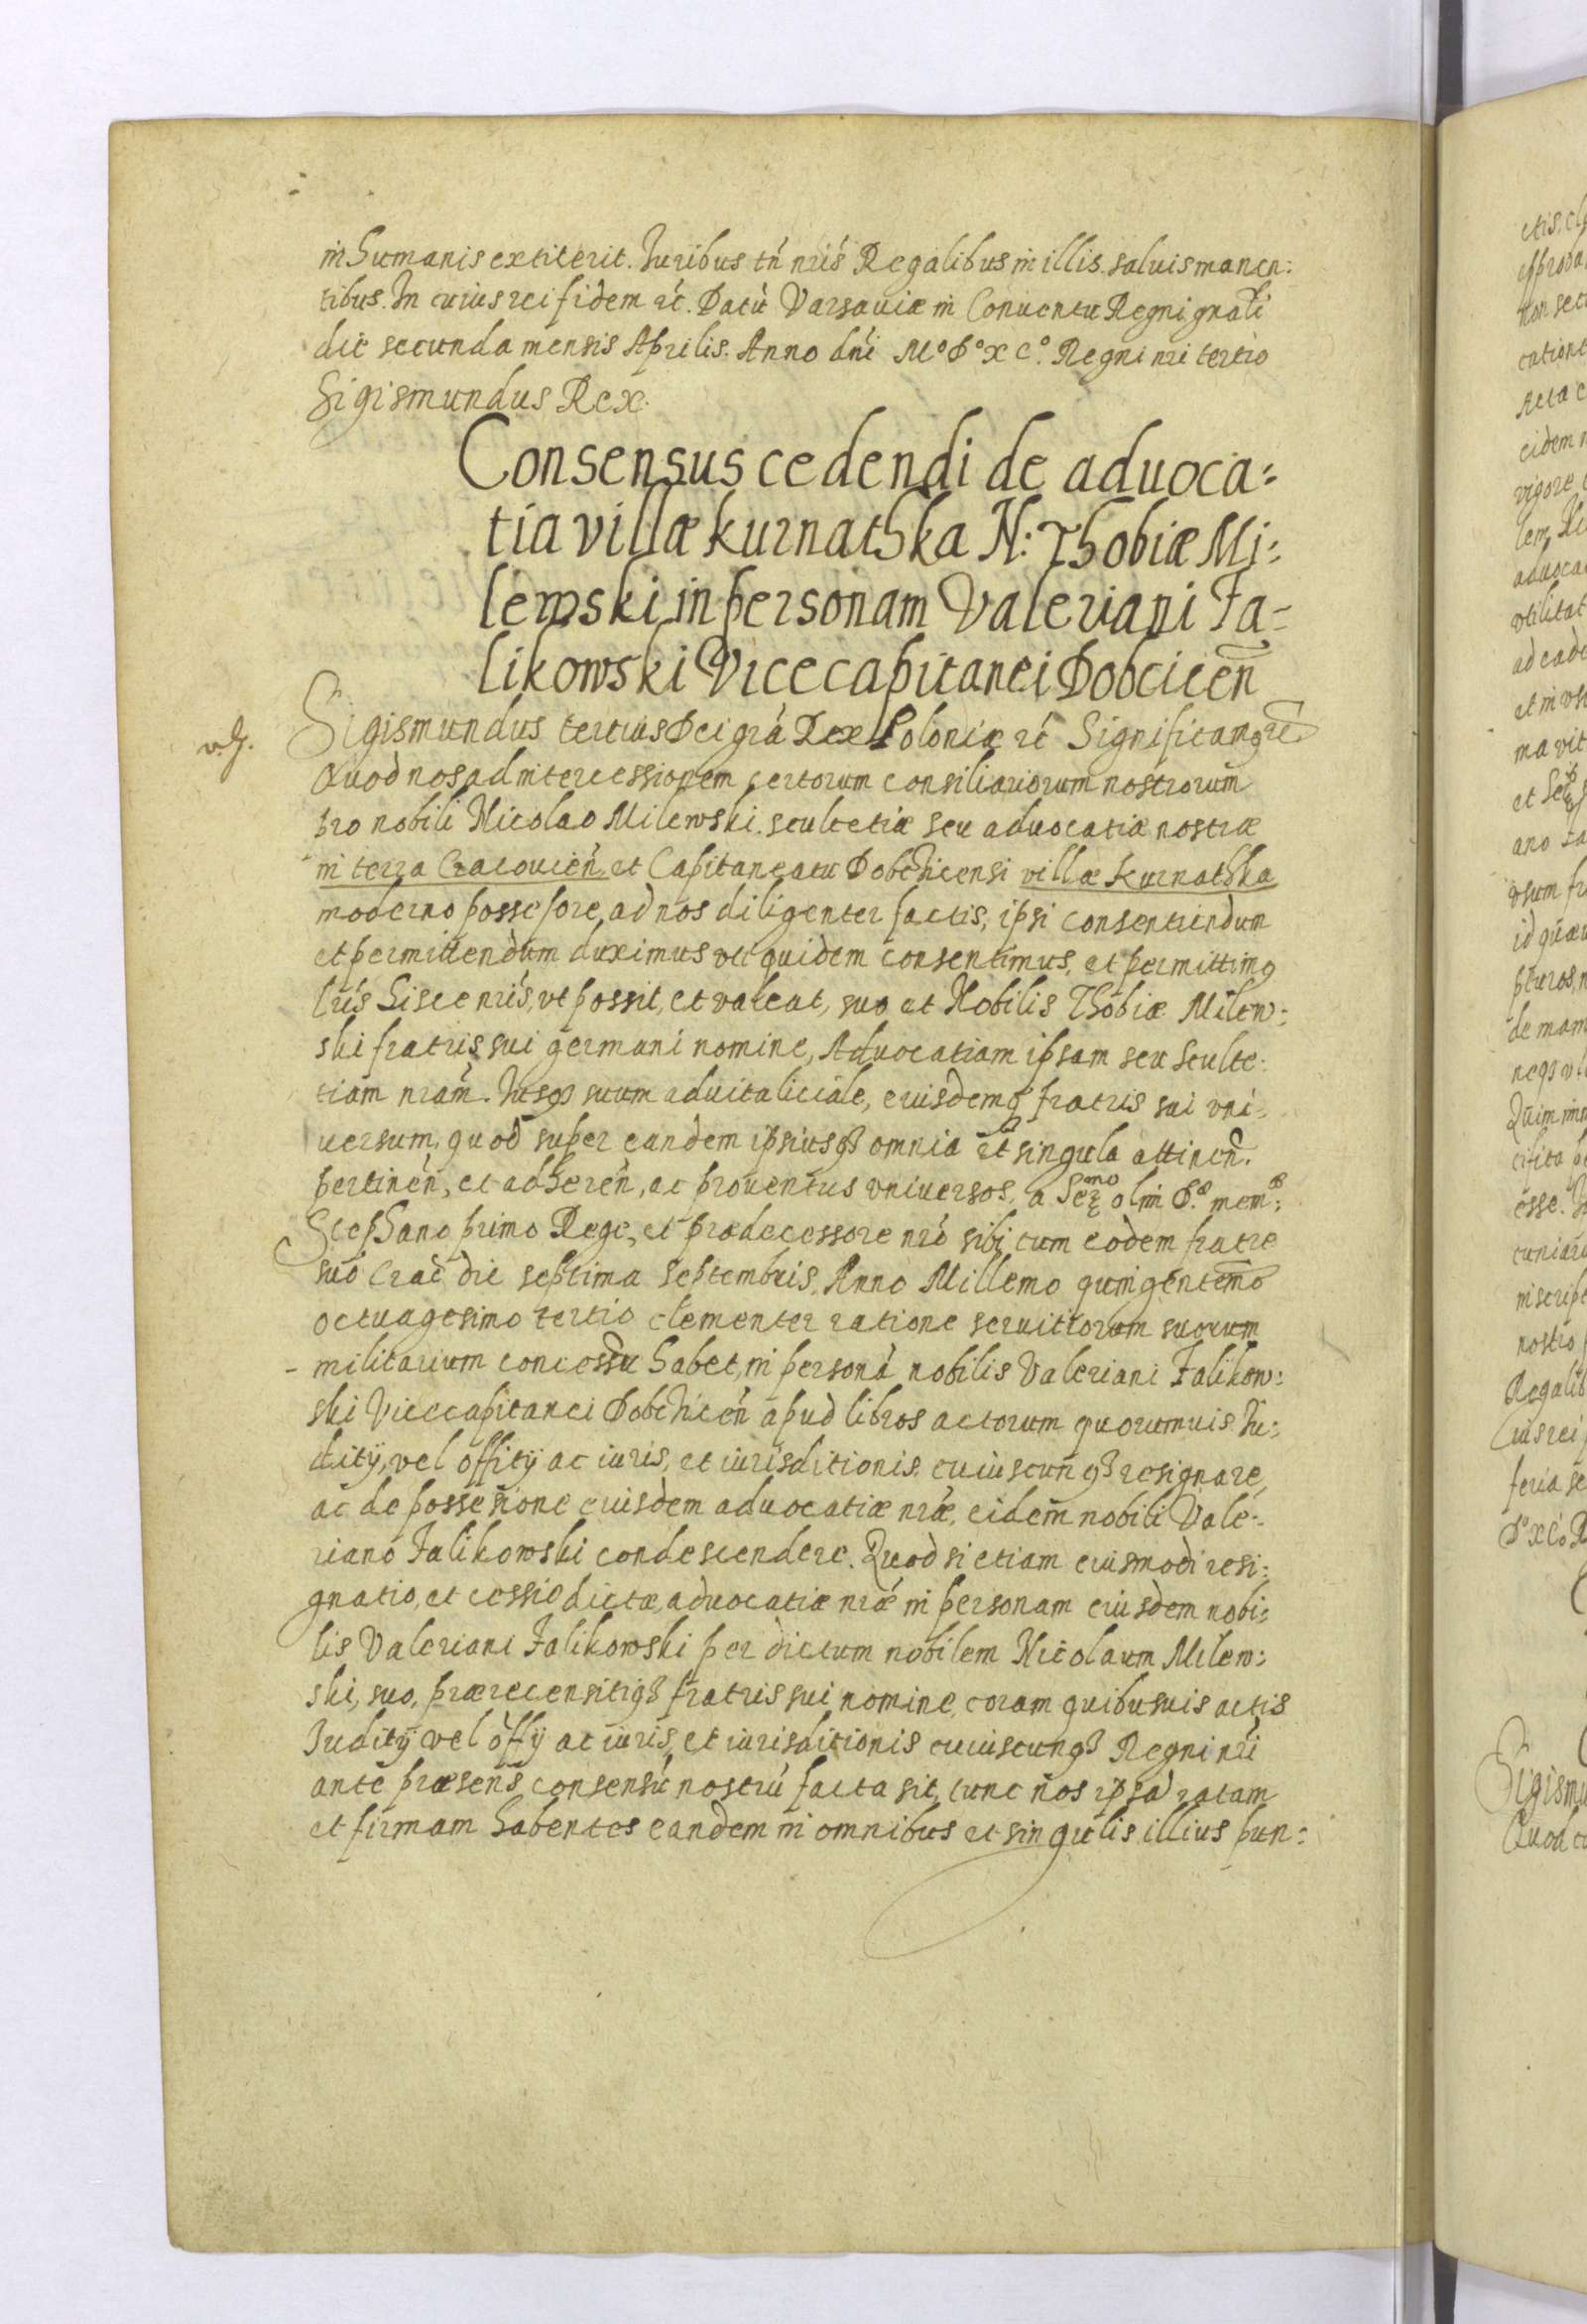 in humanis extiterit. Iuribus tń nrís Regalibus in illis saluis manen:
tibus. In cuius rei fidem rć. Datú Varsauiæ in Conuentu Regni gnałi
die secunda mensis Aprilis. Anno dńi M° D° X C°. Regni nri tertio
Sigismundus Rex.
Consensus cedendi de aduoca:
tia villæ kurnathka N: Thobiæ Mi:
lewski in personam Valeriani Fa-
likowski Vicecapitanei Dobcicen̄
v. g.
Sigismundus tertius Dei grá Rex Poloniæ rć Significamꝯ rć
Quod nos ad intercessionem certorum consiliariorum nostrorum
pro nobili Nicolao Milewski scultetiæ seu aduocatiæ nostræ
in terra Cracouień. et Capitaneatu Dobchicensi villæ Kurnathka
moderno possesore, ad nos diligenter factis, ipsi consentiendum
et permittendum duximus vti quidem consentimus, et permittimꝯ
lrís hisce nrís, vt possit, et valeat, suo et Nobilis Thobiæ Milew:
ski fratris sui germani nomine, Aduocatiam ipsam seu sculte:
tiam nram̄. Iusqꝫ suum aduitaliciale, eiusdemqꝫ fratris sui vni:
uersum, quod super eandem ipsiusqꝫ omnia et singula attinen̄.
pertinen̄, et adheren̄, ac prouentus vniuersos, a Seꝛmo olim D. mem:
Stephano primo Rege, et prædecessore nró sibi cum eodem fratre
suo Crac̄ die septima Septembris. Anno Millemo quingentemo
octuagesimo tertio clementer ratione seruitiorum suorum
- militarium concessu habet, in personá nobilis Valeriani Falikow:
ski Vicecapitanei Dobchicen̄ apud libros actorum quorumuis Iu:
ditÿ, vel offitÿ ac iuris, et iurisditionis cuiuscunqꝫ resignare,
ac de possesione eiusdem aduocatiæ nræ, eidem̄ nobili Vale:
riano Falikowski condescendere. Quod si etiam eiusmodi resi:
gnatio, et cessio dictæ, aduocatiæ nræ in personam eiusdem nobi:
lis Valeriani Falikowski per dictum nobilem Nicolaum Milew:
ski, suo, prærecensitiqꝫ fratris sui nomine, coram quibusuis actis
Iuditÿ vel offÿ ac iuris, et iurisditionis cuiuscunqꝫ Regni nrí
ante præsens consensú nostrú facta sit, tunc nos ipsa ratam
et firmam habentes eandem in omnibus et singulis illius pun: